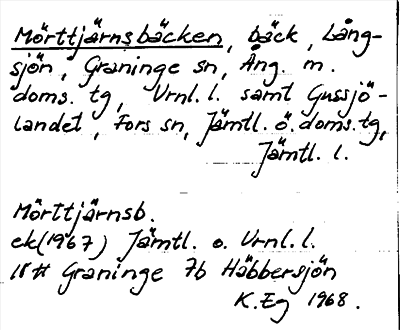 Mörttjärnsbäcken, bäck, Lång-
sjön, Graninge sn, Ång. m.
doms. tg, Vrnl. l. samt Gussjö-
landet, Fors sn, Jämtl. ö. doms. tg,
Jämtl. l.
Mörttjärnsb.
ek (1967) Jämtl. o. Vrnl. l.
Graninge 7b Häbbersjön
K. Eg 1968.